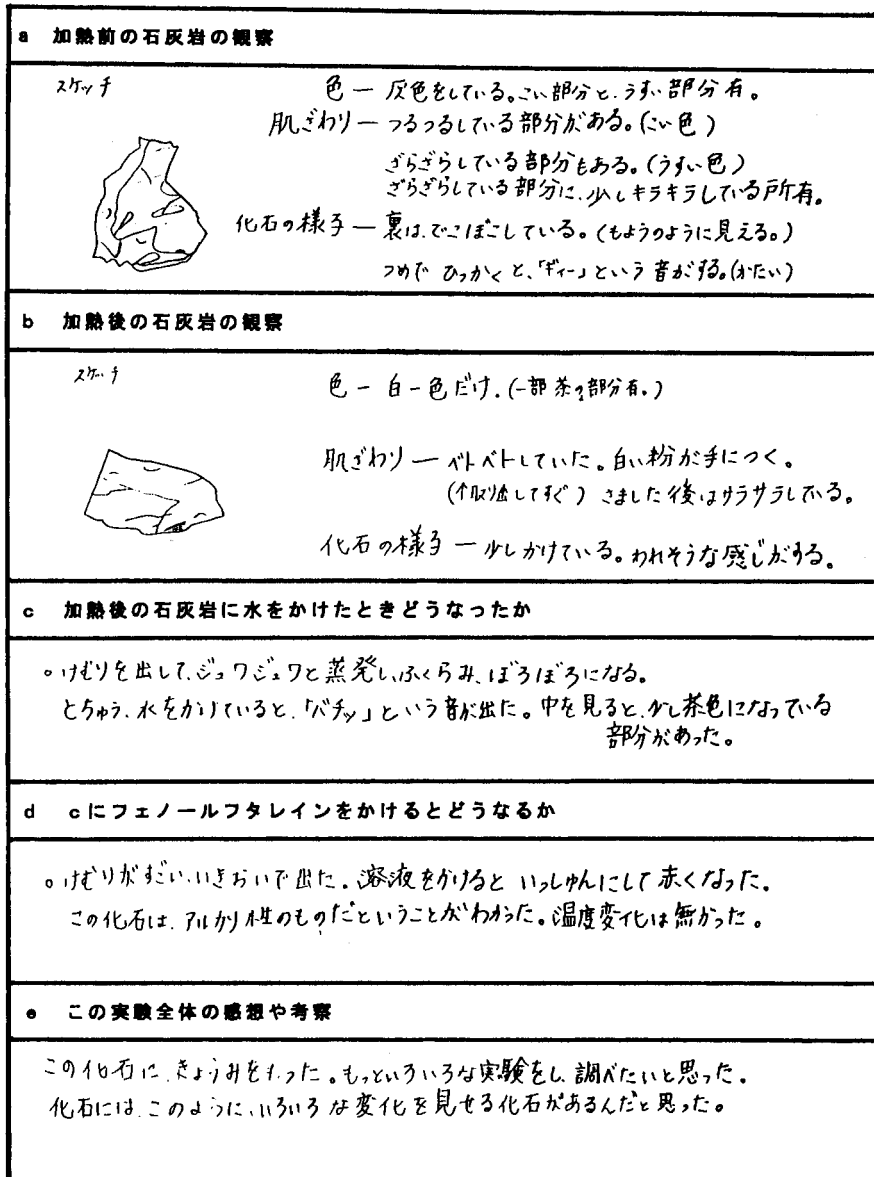 a 加熱前の石灰岩の観察
スケッチ
色 — 灰色をしている。こい部分と、うすい部分有。
肌ざわり — つるつるしている部分がある。(こい色)
ざらざらしている部分もある。(うすい色)
ざらざらしている部分に、少しキラキラしている所有。
化石の様子 — 裏は、でこぼこしている。(もようのように見える。)
つめで ひっかくと、「ギィー」という音がする。(かたい)
b 加熱後の石灰岩の観察
スケッチ
色 — 白一色だけ。(一部茶の部分有。)
肌ざわり — ベトベトしていた。白い粉が手につく。
(↑取り出してすぐ) さました後はサラサラしている。
化石の様子 — 少しかけている。われそうな感じがする。
c 加熱後の石灰岩に水をかけたときどうなったか
。けむりを出して、ジュワジュワと蒸発し、ふくらみ、ぼろぼろになる。
とちゅう、水をかけていると、「バチッ」という音が出た。中を見ると、少し茶色になっている
部分があった。
d cにフェノールフタレインをかけるとどうなるか
。けむりがすごい、いきおいで出た。溶液をかけると いっしゅんにして赤くなった。
この化石は、アルカリ性のものだということがわかった。温度変化は無かった。
e この実験全体の感想や考察
この化石に、きょうみをもった。もっといろいろな実験をし、調べたいと思った。
化石には、このように、いろいろな変化を見せる化石があるんだと思った。